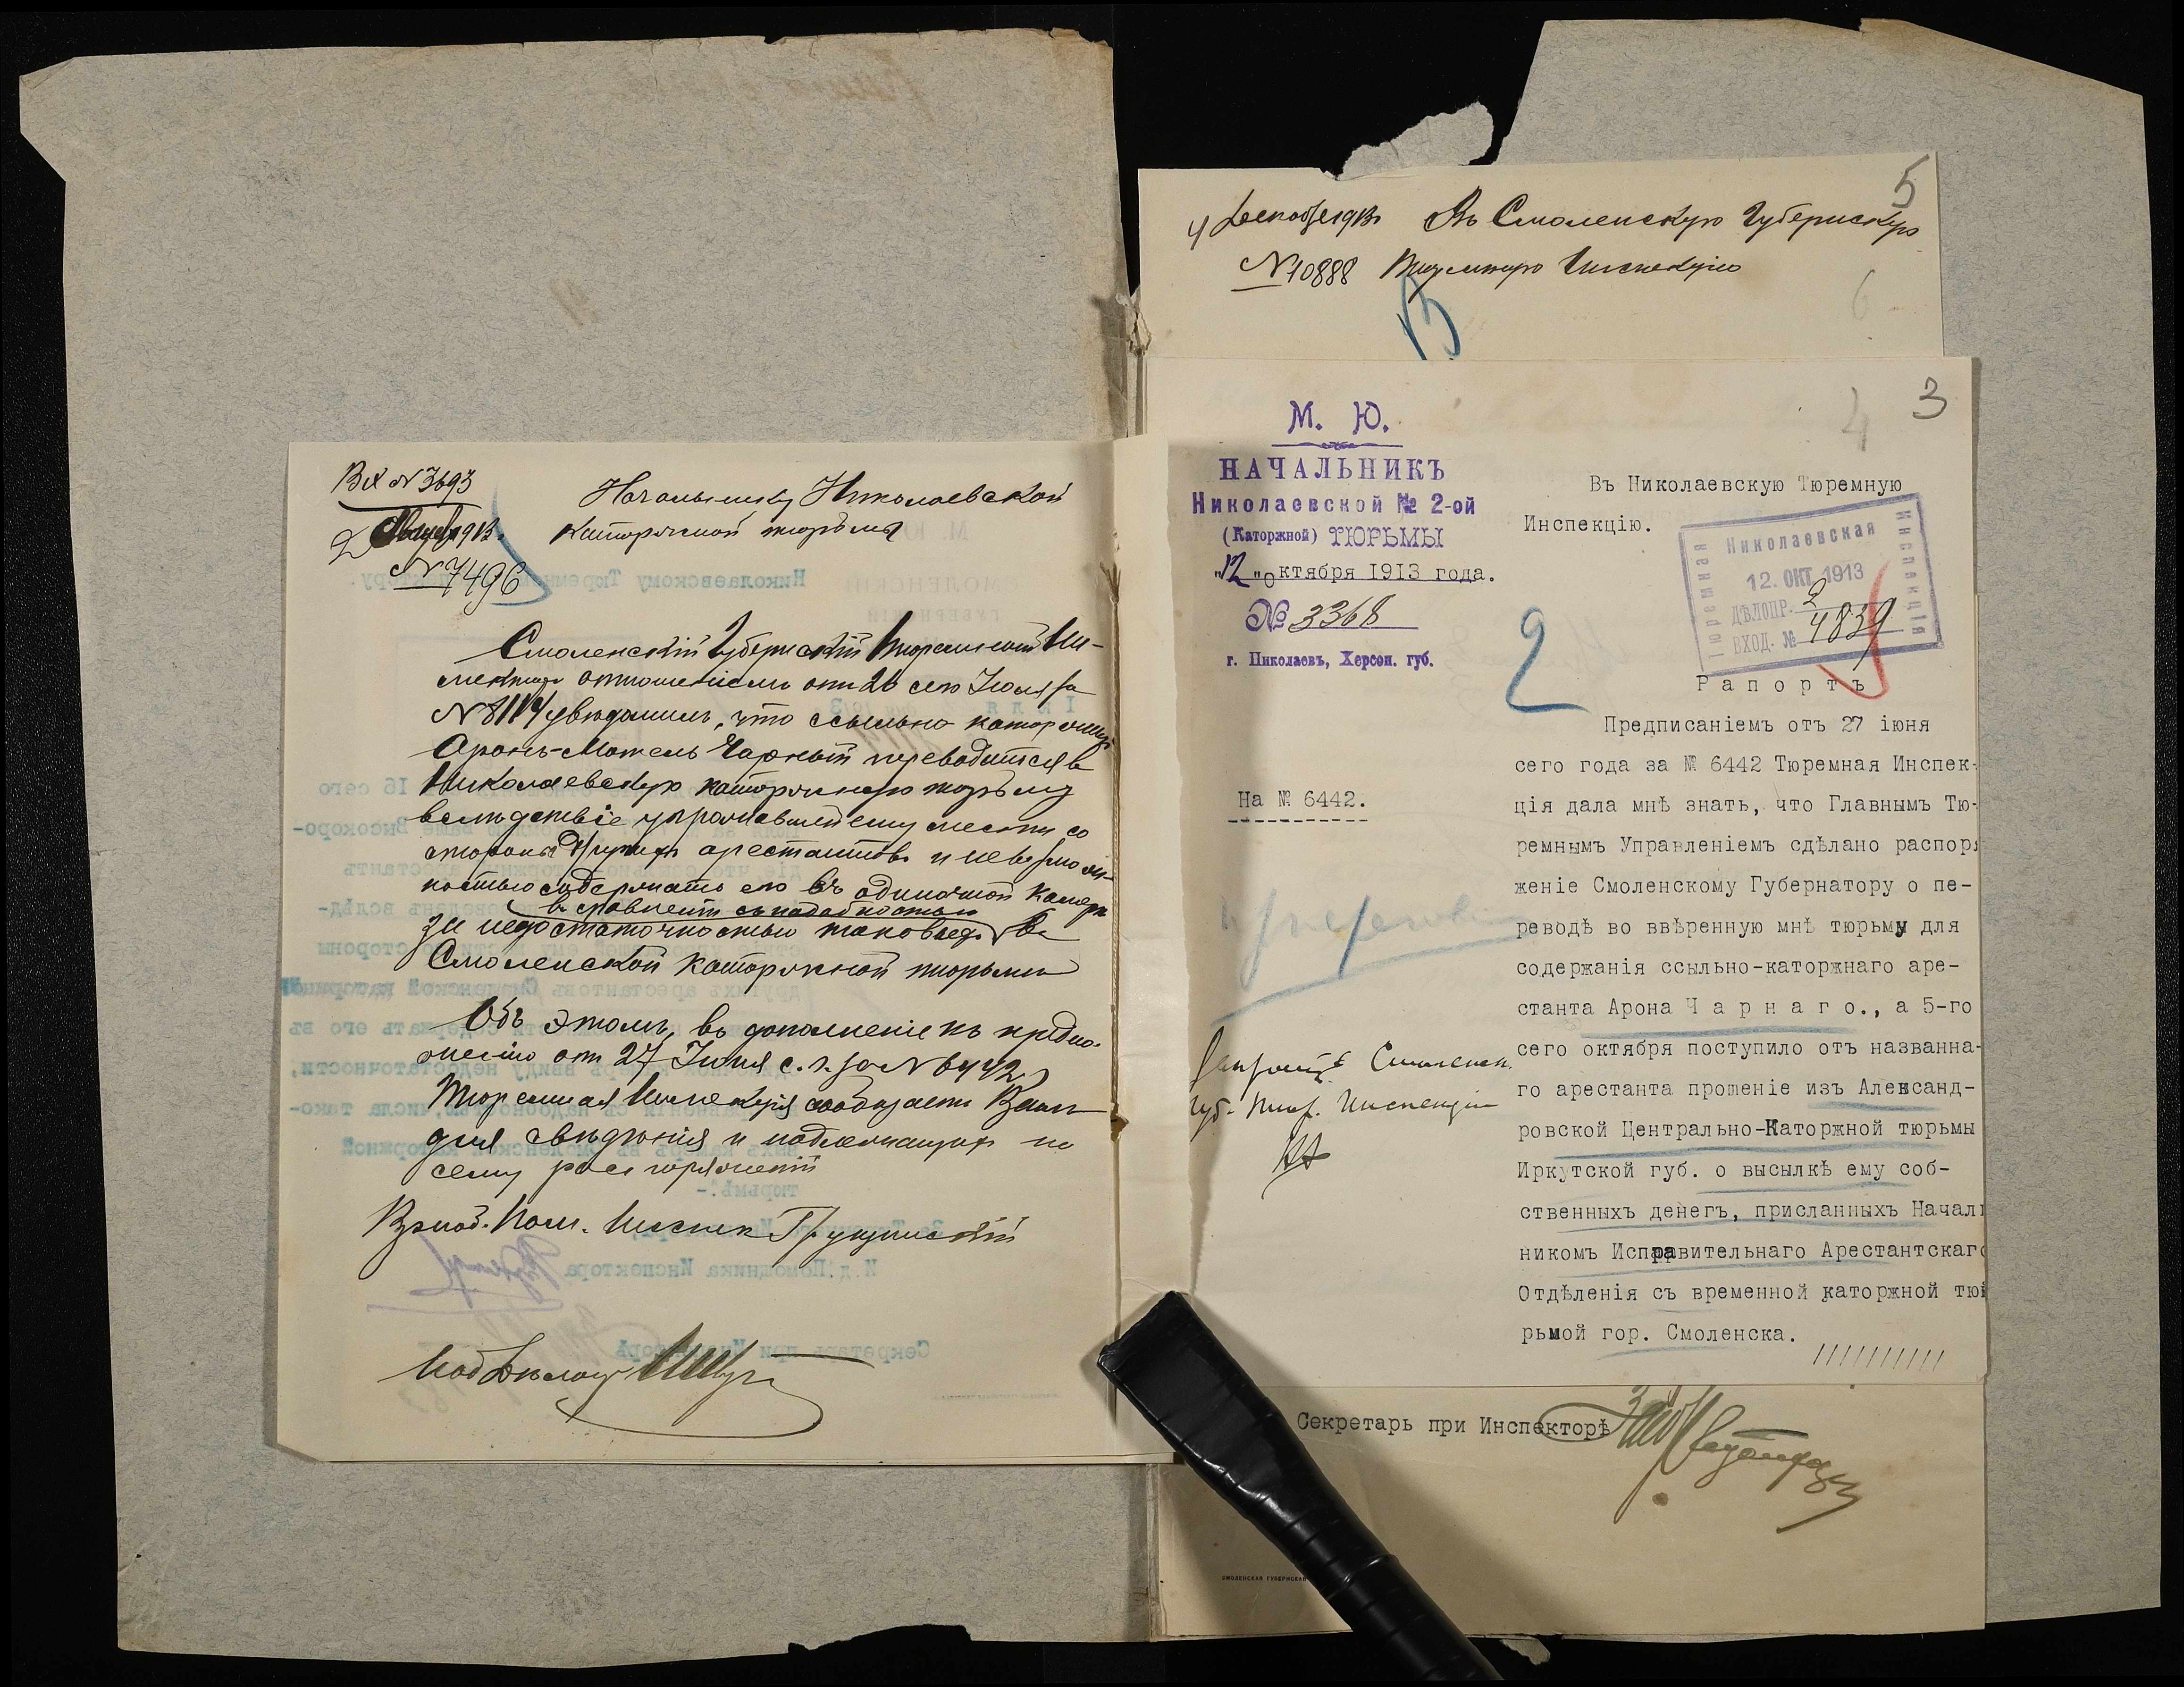 Вх № 3693
2 Августа 1913.
№ 7496
Начальнику Николаевской
каторжной тюрьмы
Смоленскій Губернскій Тюремный Ин-
спекторъ отношеніемъ отъ 26 сего Іюля за
№ 8114 увѣдомилъ, что ссыльно каторжный
Аронъ-Мотель Чарный переводится въ
Николаевскую каторжную тюрьму
вслѣдствіе угрожавшей ему мести со
стороны другихъ арестантовъ и невозмож-
ностью содержать его въ одиночной камерѣ
въ сравненіи съ надобностью
за недостаточностью таковыхъ въ
Смоленской каторжной тюрьмѣ
Объ этомъ, въ дополненіе къ предло-
женію отъ 27 Іюня с. г. за № 6442
Тюремная Инспекція сообщаетъ Вамъ
для свѣдѣнія и надлежащихъ по
сему распоряженій
Пом. Инспек
5
4 Декабря 1913 Въ Смоленскую Губернскую
№ 10888 Тюремную Инспекцію
6
4 3
М. Ю.
НАЧАЛЬНИКЪ
Николаевской № 2-ой
(Каторжной) ТЮРЬМЫ
„12„ октября 1913 года.
№ 3368
г. Николаевъ, Херсон. губ.
На № 6442.
Въ Николаевскую Тюремную
Инспекцію.
Николаевская
Тюремная
Инспекція
12. ОКТ 1913
ДѢЛОПР. 2
ВХОД. № 4839
2
Рапортъ
Предписаніемъ отъ 27 іюня
сего года за № 6442 Тюремная Инспек-
ція дала мнѣ знать, что Главнымъ Тю-
ремнымъ Управленіемъ сдѣлано распоря
женіе Смоленскому Губернатору о пе-
реводѣ во ввѣренную мнѣ тюрьму для
содержанія ссыльно-каторжнаго аре-
станта Арона Чарнаго., а 5-го
сего октября поступило отъ названна-
го арестанта прошеніе изъ Александ-
ровской Центрально-Каторжной тюрьмы
Иркутской губ. о высылкѣ ему соб-
ственныхъ денегъ, присланныхъ Началь
никомъ Исправительнаго Арестантскаго
Отдѣленія съ временной каторжной тю
рьмой гор. Смоленска.
Смоленск.
Губ. Тюр. Инспекцію
Секретарь при Инспекторѣ
СМОЛЕНСКАЯ ГУБЕРНСКАЯ